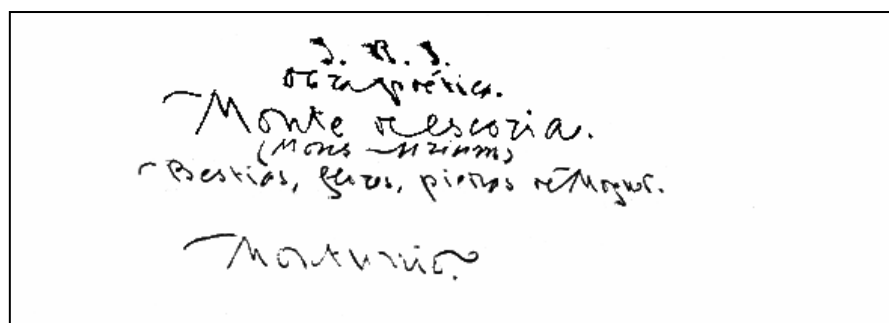 J. R. J.
Obra poética.
Monte de escoria.
(Mons-Urium)
Bestias, flores, piedras de Moguer.
Monturrio.